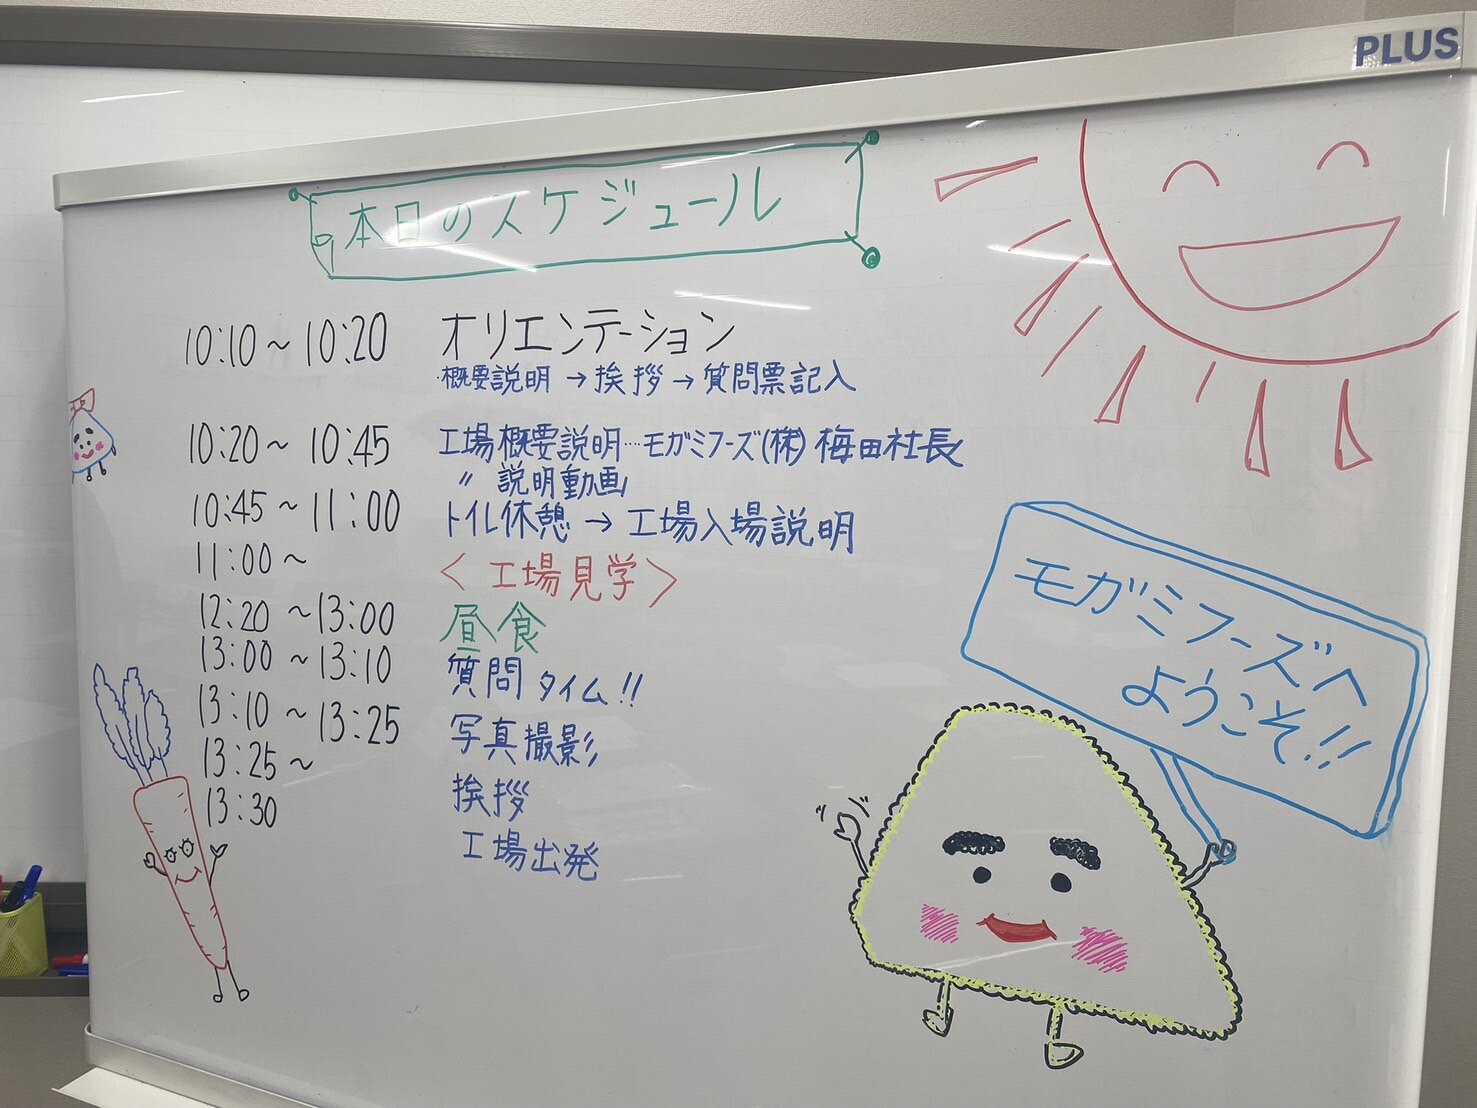 PLUS
本日のスケジュール
10:10～10:20 オリエンテーション
・概要説明→挨拶→質問票記入
10:20～10:45 工場概要説明…モガミフーズ(株)梅田社長
〃 説明動画
10:45～11:00 トイレ休憩→工場入場説明
11:00～ <工場見学>
12:20～13:00 昼食
13:00～13:10 質問タイム!!
13:10～13:25 写真撮影
13:25～ 挨拶
13:30 工場出発
モガミフーズへ
ようこそ!!